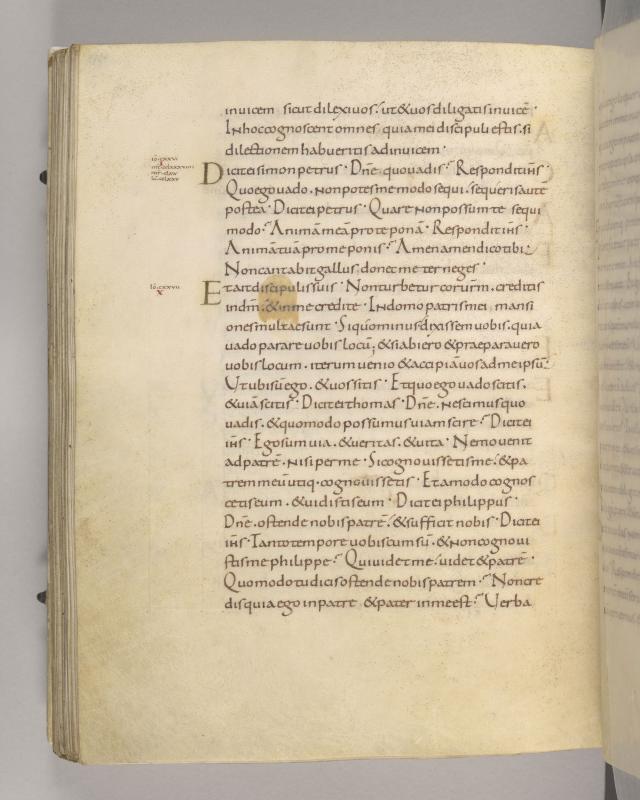 invicem sicut dilexi vos. ut & vos diligatis invicē.
In hoc cognoscent omnes. quia mei discipuli estis. si
dilectionem habueritis ad invicem.
Dicit ei simon petrus. Dn̄e quo vadis? Respondit ih̄s
Quo ego vado. non potes me modo sequi. sequeris aute
postea. Dicit ei petrus. Quare non possum te sequi
modo? Animā meā pro te ponā. Respondit ih̄s
Animā tuā pro me ponis? Amen amen dico tibi;
Non cantabit gallus donec me ter neges.
Et ait discipulis suis. Non turbetur cor urm̄. creditis
in dm̄. & in me credite. In domo patris mei mansi
ones multae sunt. Si quominus dixissem vobis. quia
vado parare vobis locū; & si abiero & praeparavero
vobis locum. iterum venio & accipiā vos ad me ipsū.
Ut ubi sū ego. & vos sitis. Et quo ego vado scitis.
& viā scitis. Dicit ei thomas. Dn̄e. nescimus quo
vadis. & quomodo possumus viam scire? Dicit ei
ih̄s. Ego sum via. & veritas. & vita. Nemo venit
ad patrē. nisi per me. Si cognovissetis me. & pa
trem meū utiq. cognovissetis. Et amodo cognos
cetis eum. & vidistis eum. Dicit ei philippus.
Dn̄e. ostende nobis patrē. & sufficit nobis. Dicit ei
ih̄s. Tanto tempore vobiscum sū. & non cognovi
stis me philippe? Qui videt me. videt & patrē.
Quomodo tu dicis ostende nobis patrem? Non cre
dis quia ego in patre & pater in me est? Verba